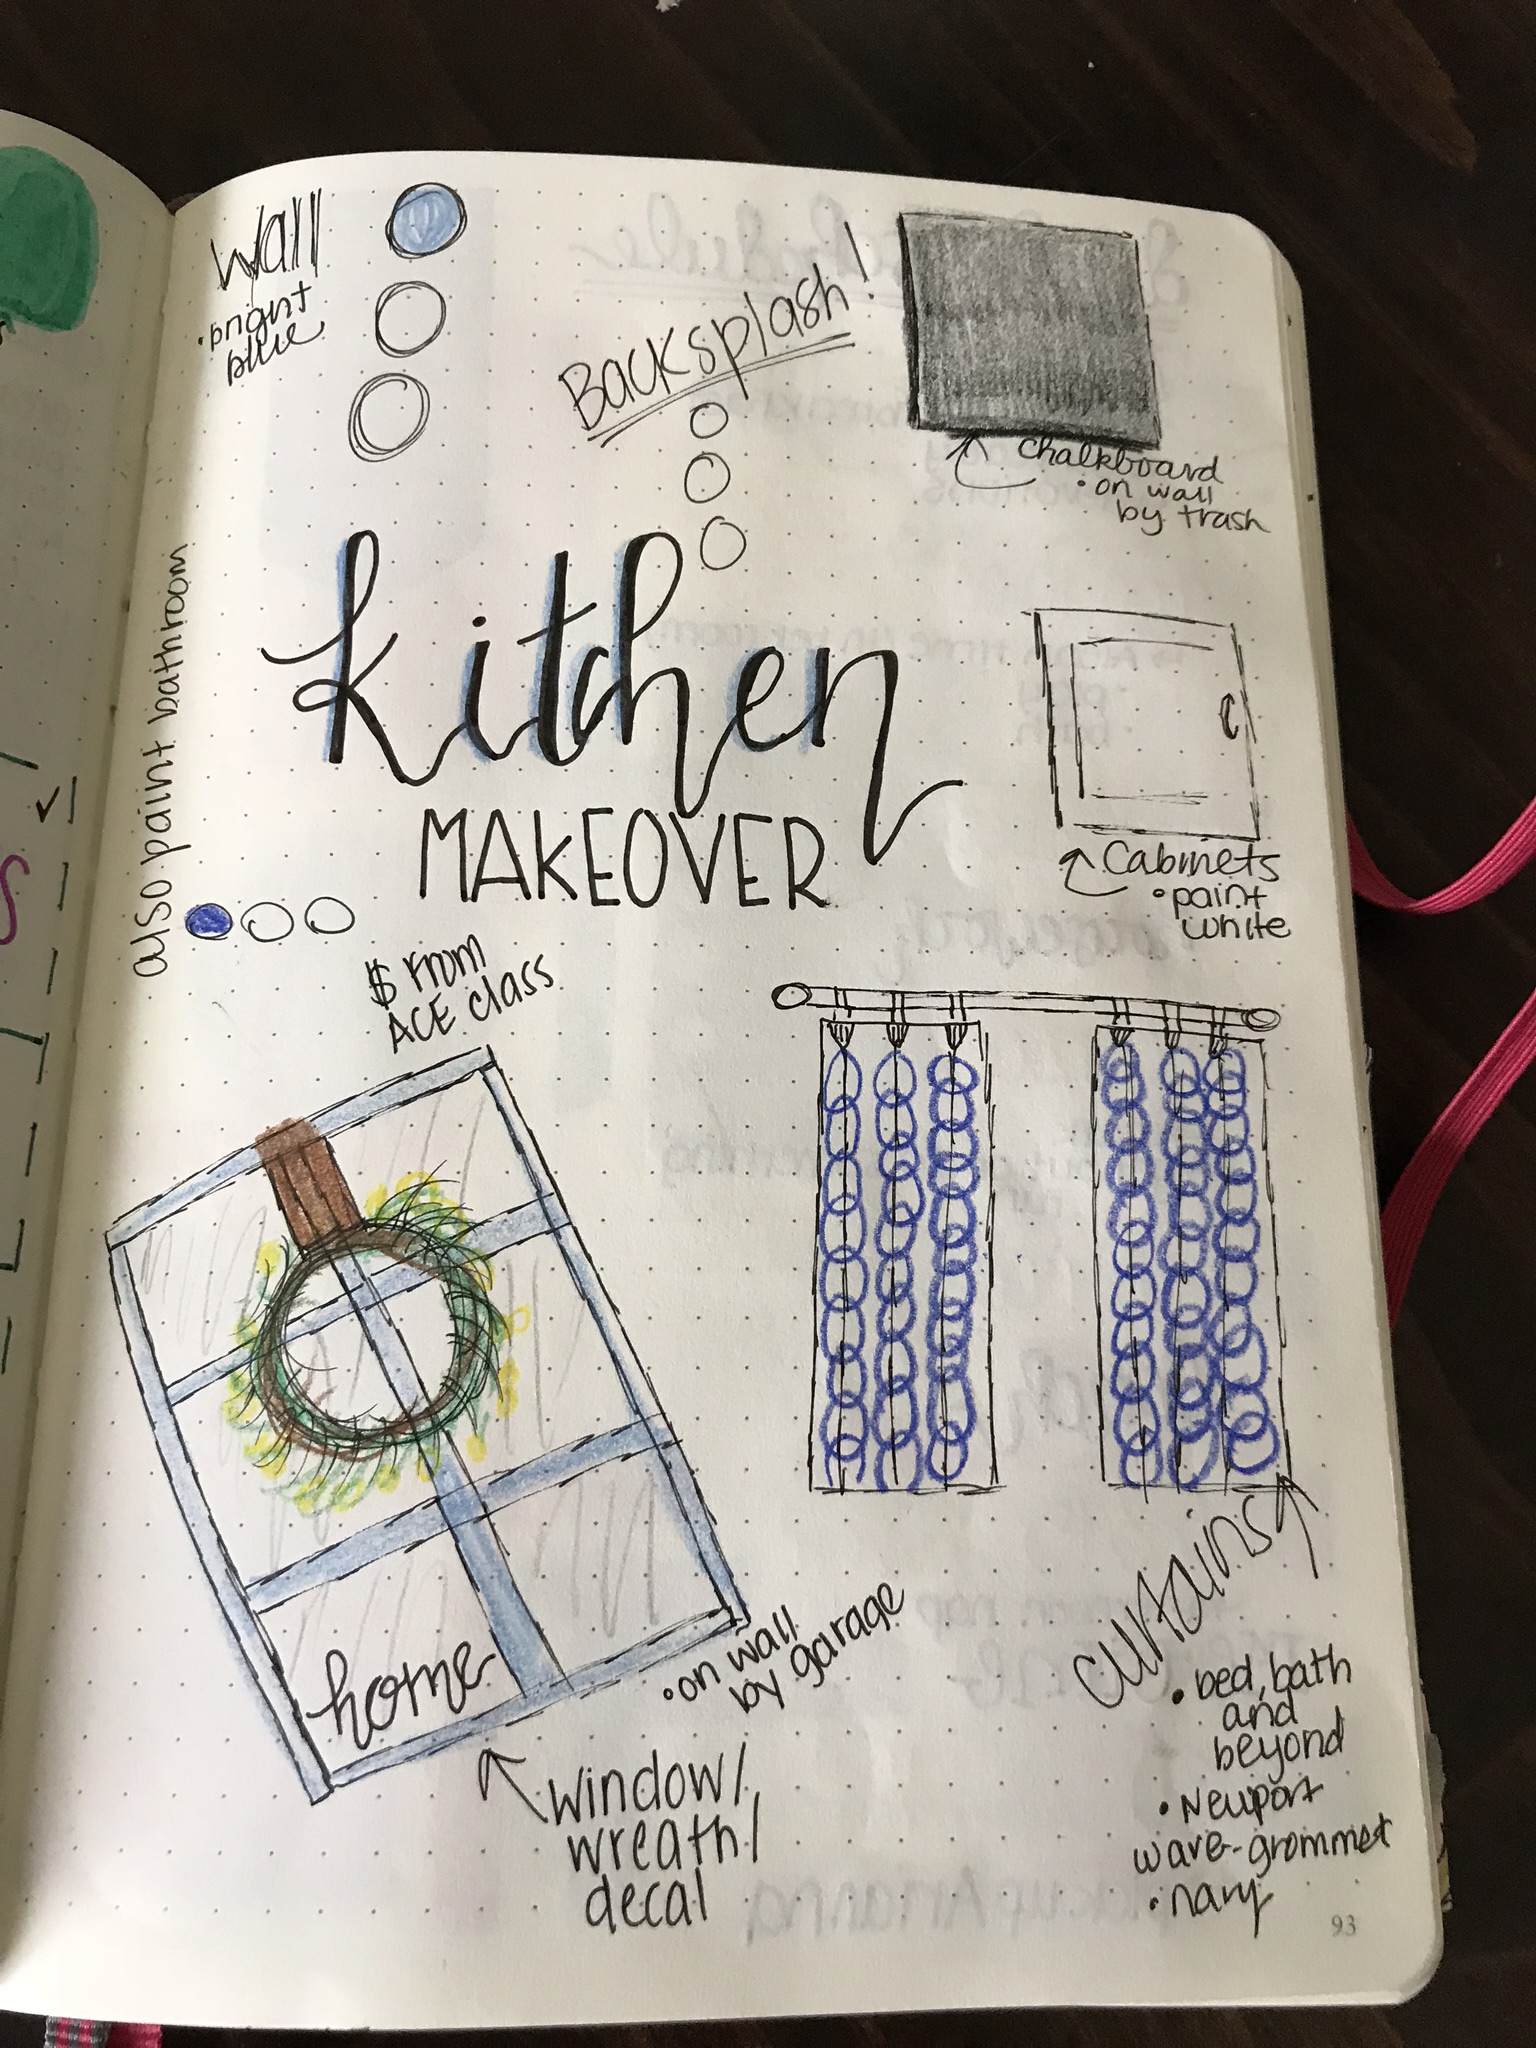 Wall
• bright
blue
Backsplash!
chalkboard
• on wall
by trash
also paint bathroom
kitchen
MAKEOVER
Cabinets
• paint
white
$ From
ACE class
home
• on wall
by garage
window/
wreath/
decal
curtains
• bed, bath
and
beyond
• Newport
wave-grommet
• navy
93